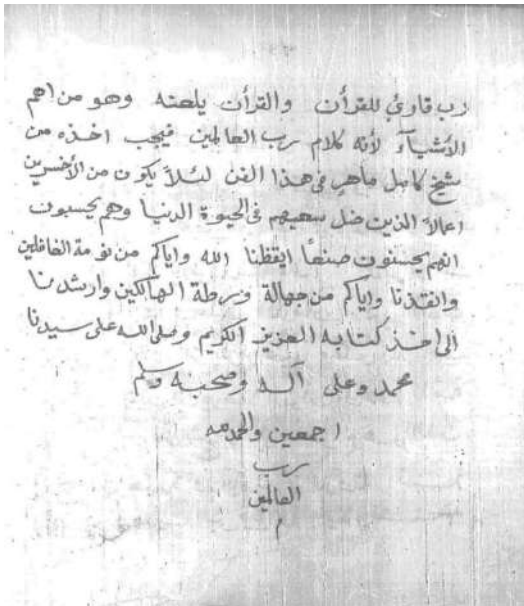 رب قارئ للقرأن والقرأن يلعنه وهو من اهم
الأشياء لأنه كلام رب العالمين فيجب اخذه من
شيخ كامل ماهر في هذا الفن لئلاً يكون من الأخسرين
اعمالاً الذين ضل سعيهم في الحيوة الدنيا وهم يحسبون
انهم يحسنون صنعاً ايقظنا الله واياكم من نومة الغافلين
وانقذنا واياكم من جهالة ورطة الهالكين وارشدنا
الى اخذ كتابه العزيز الكريم وصلى الله على سيدنا
محمد وعلى آله وصحبه وسلم
اجمعين والحمد لله
رب
العالمين
م